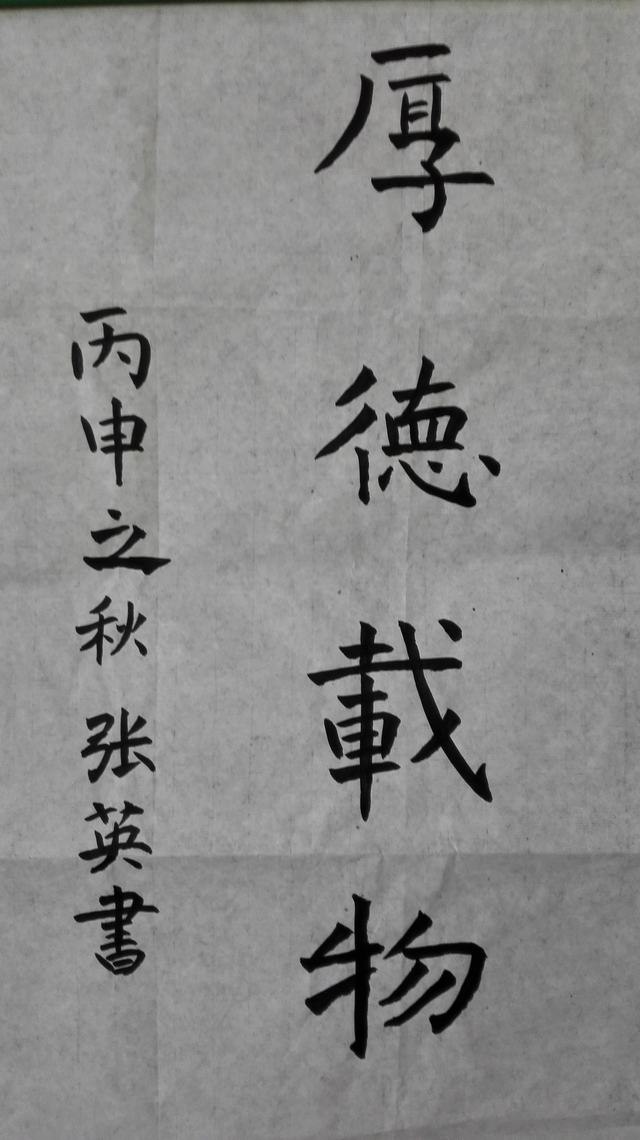 厚德載物
丙申之秋 张英書